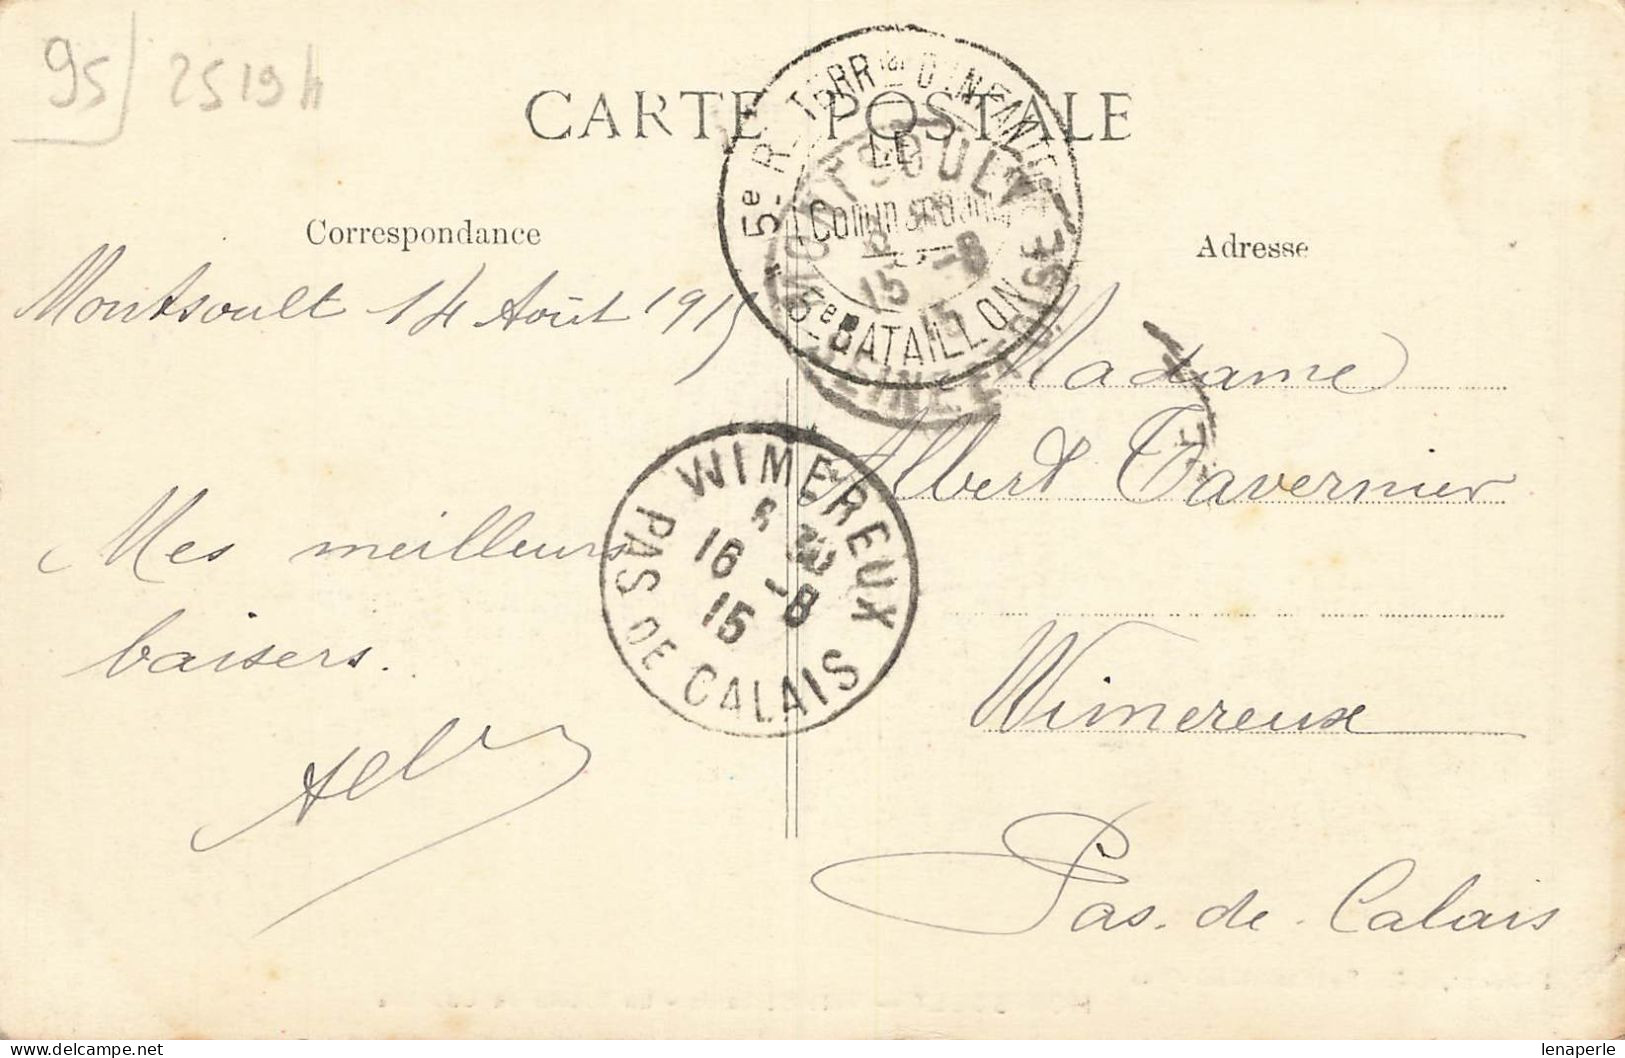 95/ 2519h
CARTE POSTALE
5e R. TERRal D'INFANTRIE
LE
Commandant
5e BATAILLON
MONTSOULT
15 -8
15
SEINE ET OISE
Correspondance
Adresse
Montsoult 14 Août 1915
Mes meilleurs
baisers.
Alb
WIMEREUX
16 -8
15
PAS DE CALAIS
Madame
Albert Tavernier
Wimereux
Pas. de. Calais
lenaperle